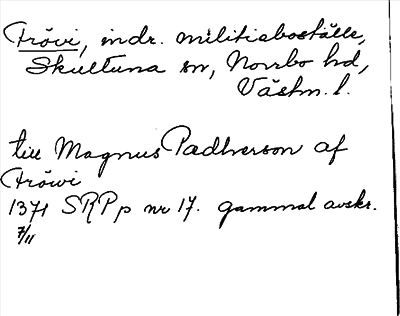 Fröwi, indr. militieboställe,
Skultuna sn, Norrbo hd,
Västm. l.
till Magnus Padherson af
Fröwi
1371 SRPp nr 17. gammal avskr.
7/11